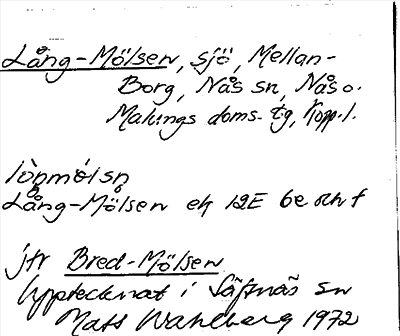 Lång-Mölsen, sjö, Mellan-
Borg, Nås sn, Nås o.
Malungs doms. tg, Kopp. l.
lòŋmólsṇ
Lång-Mölsen ek 12E 6e och f
jfr Bred-Mölsen
Upptecknat i Säfsnäs sn
Mats Wahlberg 1972